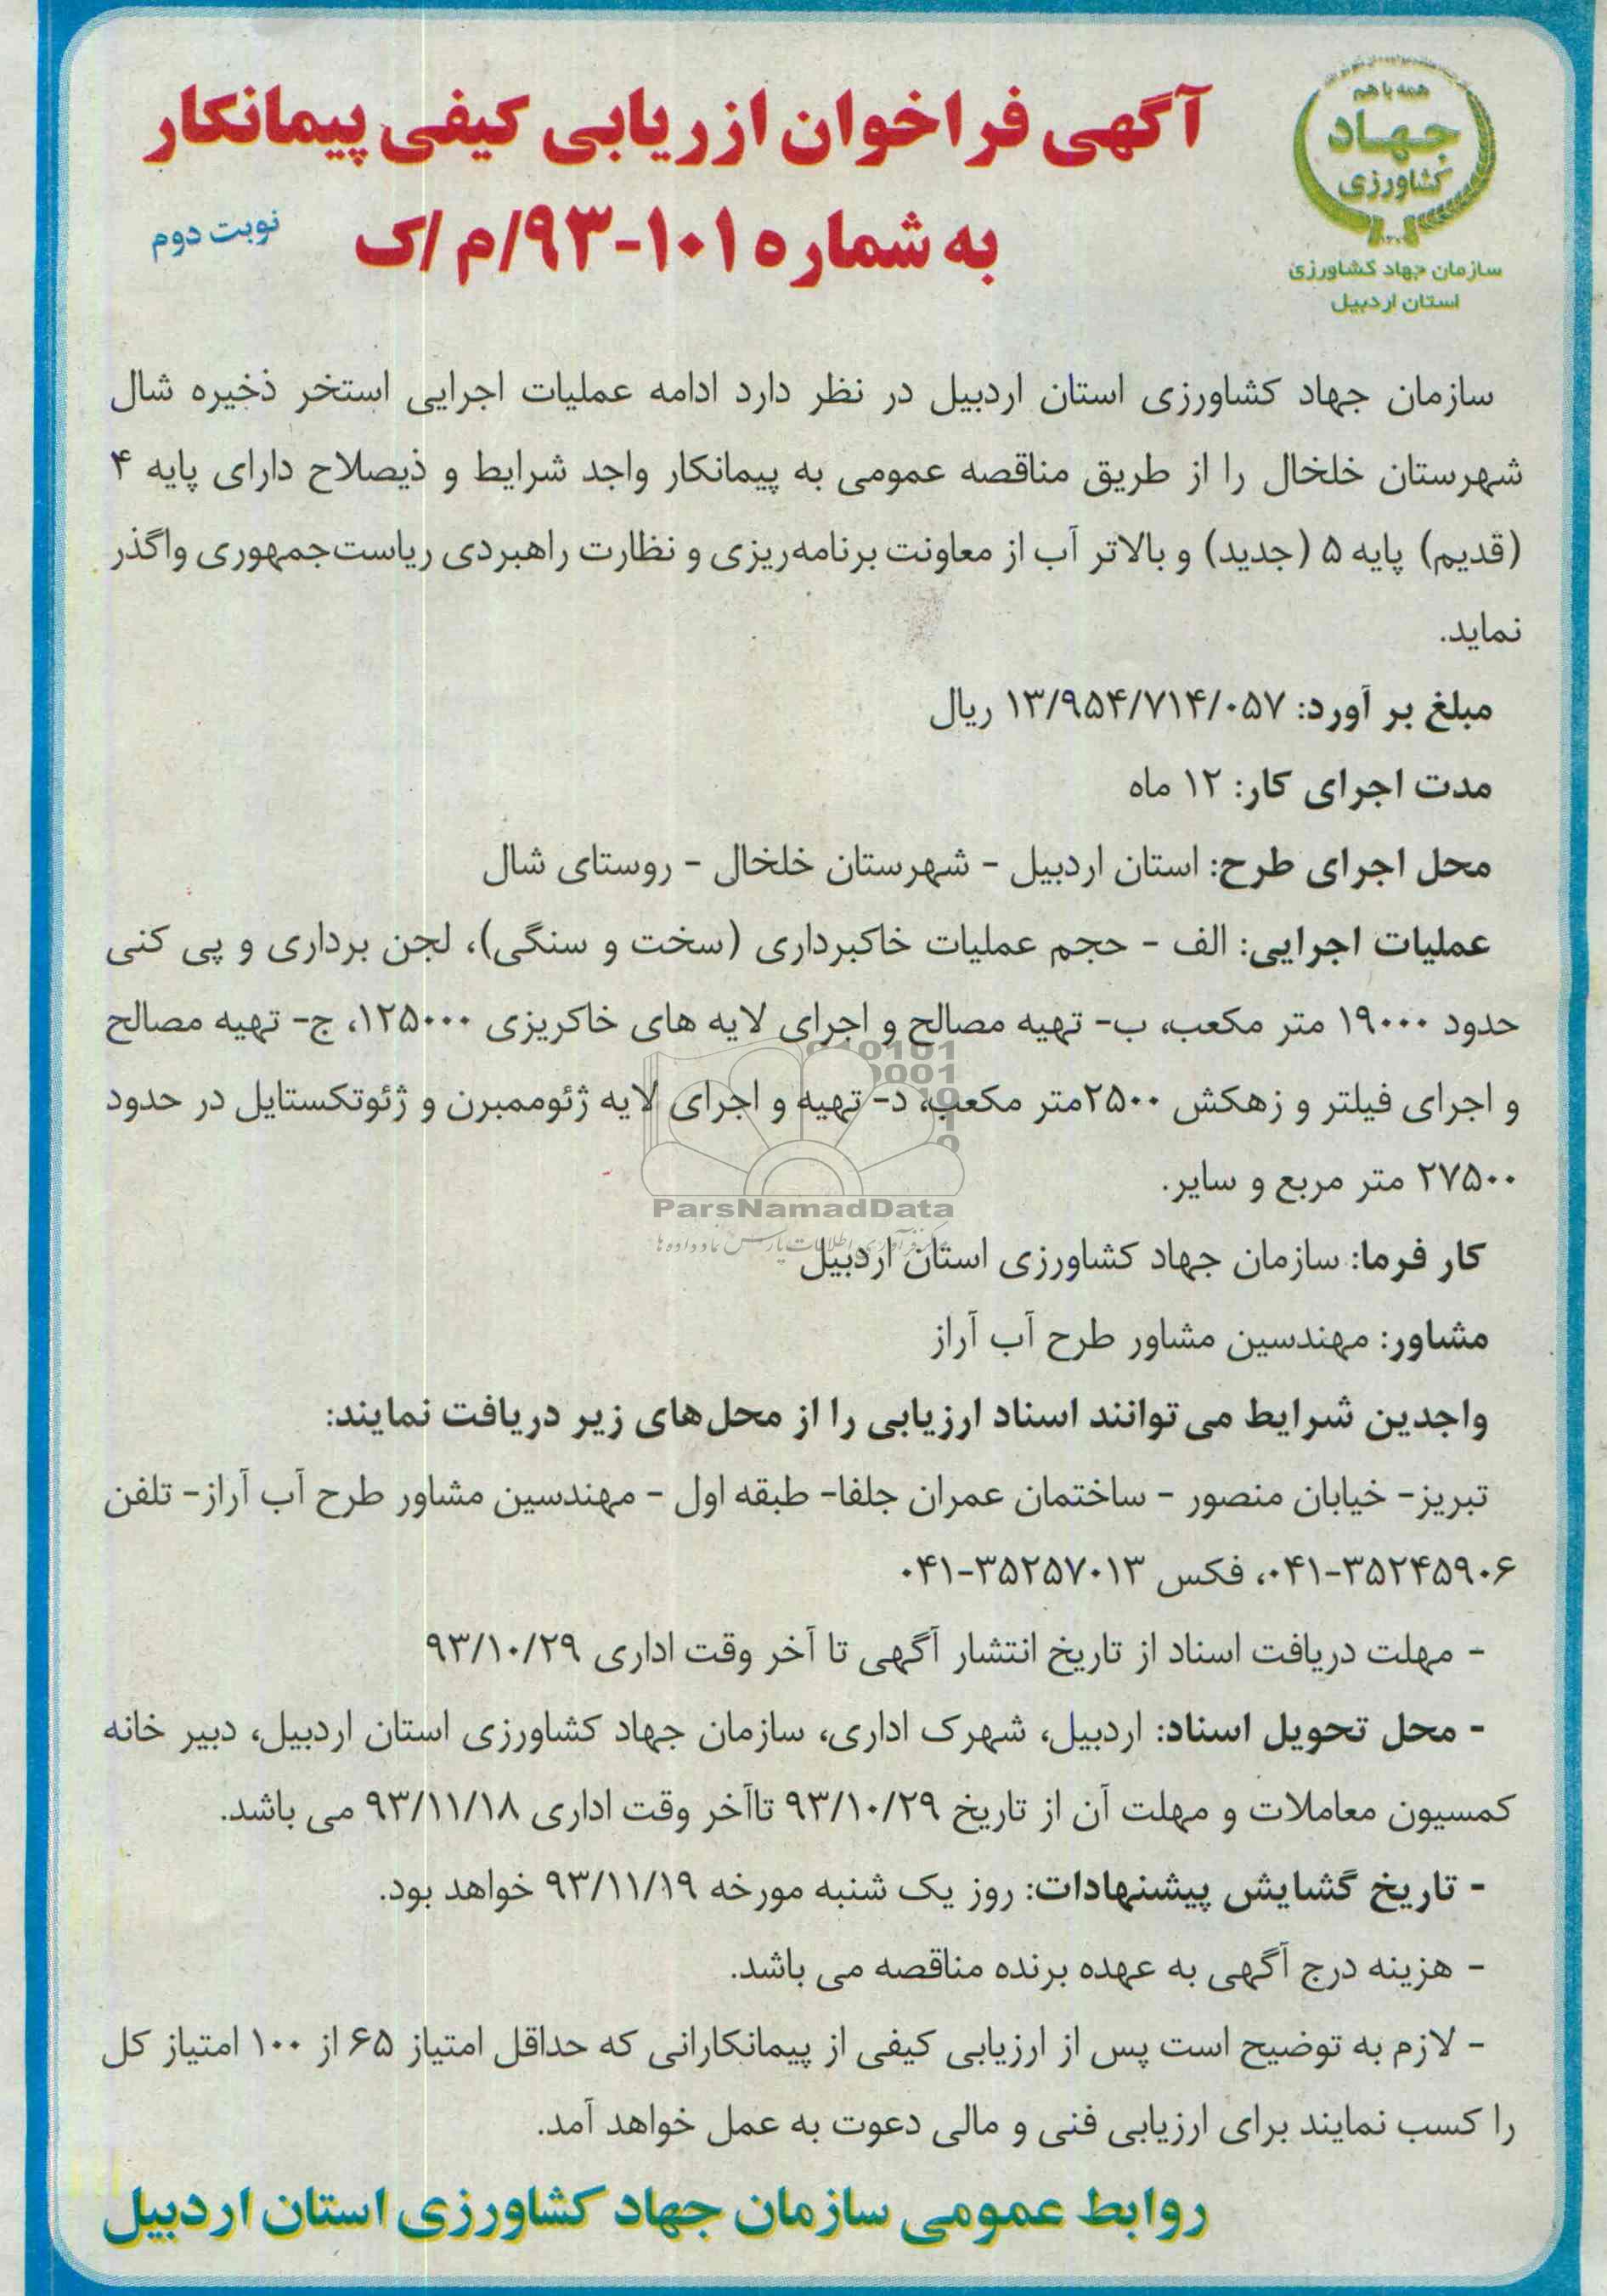 همه با هم
جهاد
کشاورزی
سازمان جهاد کشاورزی
استان اردبیل
آگهی فراخوان ارزیابی کیفی پیمانکار
به شماره ۱۰۱-۹۳/م/ک
نوبت دوم
سازمان جهاد کشاورزی استان اردبیل در نظر دارد ادامه عملیات اجرایی استخر ذخیره شال
شهرستان خلخال را از طریق مناقصه عمومی به پیمانکار واجد شرایط و ذیصلاح دارای پایه ۴
(قدیم) پایه ۵ (جدید) و بالاتر آب از معاونت برنامه‌ریزی و نظارت راهبردی ریاست‌جمهوری واگذر
نماید.
مبلغ بر آورد: ۱۳/۹۵۴/۷۱۴/۰۵۷ ریال
مدت اجرای کار: ۱۲ ماه
محل اجرای طرح: استان اردبیل - شهرستان خلخال - روستای شال
عملیات اجرایی: الف - حجم عملیات خاکبرداری (سخت و سنگی)، لجن برداری و پی کنی
حدود ۱۹۰۰۰ متر مکعب، ب- تهیه مصالح و اجرای لایه های خاکریزی ۱۲۵۰۰۰، ج- تهیه مصالح
و اجرای فیلتر و زهکش ۲۵۰۰متر مکعب، د- تهیه و اجرای لایه ژئوممبرن و ژئوتکستایل در حدود
۲۷۵۰۰ متر مربع و سایر.
ParsNamadData
کار فرما: سازمان جهاد کشاورزی استان اردبیل
مشاور: مهندسین مشاور طرح آب آراز
واجدین شرایط می توانند اسناد ارزیابی را از محل‌های زیر دریافت نمایند:
تبریز- خیابان منصور - ساختمان عمران جلفا- طبقه اول - مهندسین مشاور طرح آب آراز- تلفن
۰۴۱-۳۵۲۴۵۹۰۶، فکس ۰۴۱-۳۵۲۵۷۰۱۳
- مهلت دریافت اسناد از تاریخ انتشار آگهی تا آخر وقت اداری ۹۳/۱۰/۲۹
- محل تحویل اسناد: اردبیل، شهرک اداری، سازمان جهاد کشاورزی استان اردبیل، دبیر خانه
کمسیون معاملات و مهلت آن از تاریخ ۹۳/۱۰/۲۹ تاآخر وقت اداری ۹۳/۱۱/۱۸ می باشد.
- تاریخ گشایش پیشنهادات: روز یک شنبه مورخه ۹۳/۱۱/۱۹ خواهد بود.
- هزینه درج آگهی به عهده برنده مناقصه می باشد.
- لازم به توضیح است پس از ارزیابی کیفی از پیمانکارانی که حداقل امتیاز ۶۵ از ۱۰۰ امتیاز کل
را کسب نمایند برای ارزیابی فنی و مالی دعوت به عمل خواهد آمد.
روابط عمومی سازمان جهاد کشاورزی استان اردبیل